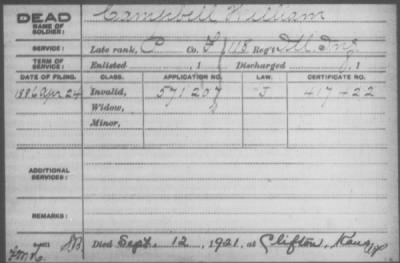 DEAD
NAME OF SOLDIER:
Campbell William
SERVICE:
Late rank, C Co. F, 118 Reg't Ill Inf
TERM OF SERVICE:
Enlisted , 1 Discharged , 1
DATE OF FILING. CLASS. APPLICATION NO. LAW. CERTIFICATE NO.
1886 Apr 24 Invalid, 571207 J 417422
Widow,
Minor,
ADDITIONAL SERVICES:
REMARKS:
Died Sept. 12, 1921, at Clifton, Kans